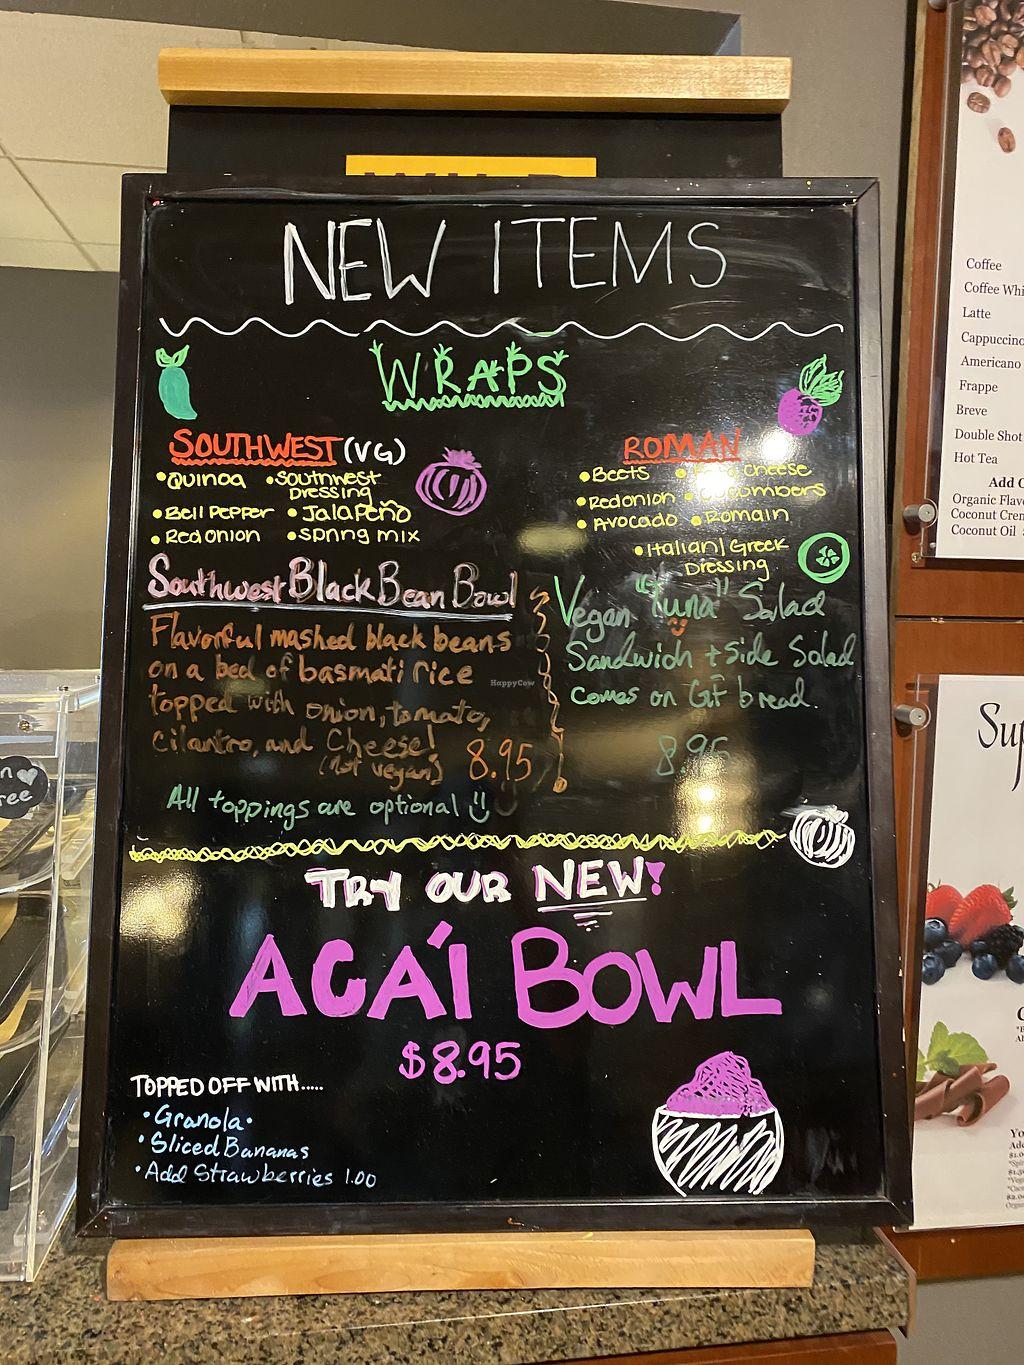 NEW ITEMS
WRAPS
SOUTHWEST (VG)
• Quinoa • Southwest
Dressing
• Bell Pepper • Jalapeño
• Red onion • spring mix
ROMAN
• Beets • cheese
• Red onion • cucumbers
• Avocado • Romain
• Italian/Greek
Dressing
Southwest Black Bean Bowl
Flavorful mashed black beans
on a bed of basmati rice
topped with onion, tomato,
cilantro, and Cheese!
(not vegan) 8.95
All toppings are optional
Vegan "Tuna" Salad
Sandwich + Side Salad
comes on GF bread.
8.95
TRY OUR NEW!
ACAÍ BOWL
$8.95
TOPPED OFF WITH.....
• Granola •
• Sliced Bananas
• Add Strawberries 1.00
HappyCow
Coffee
Coffee Whi
Latte
Cappuccino
Americano
Frappe
Breve
Double Shot
Hot Tea
Add
Organic Flav
Coconut Crem
Coconut Oil
Sup
ree